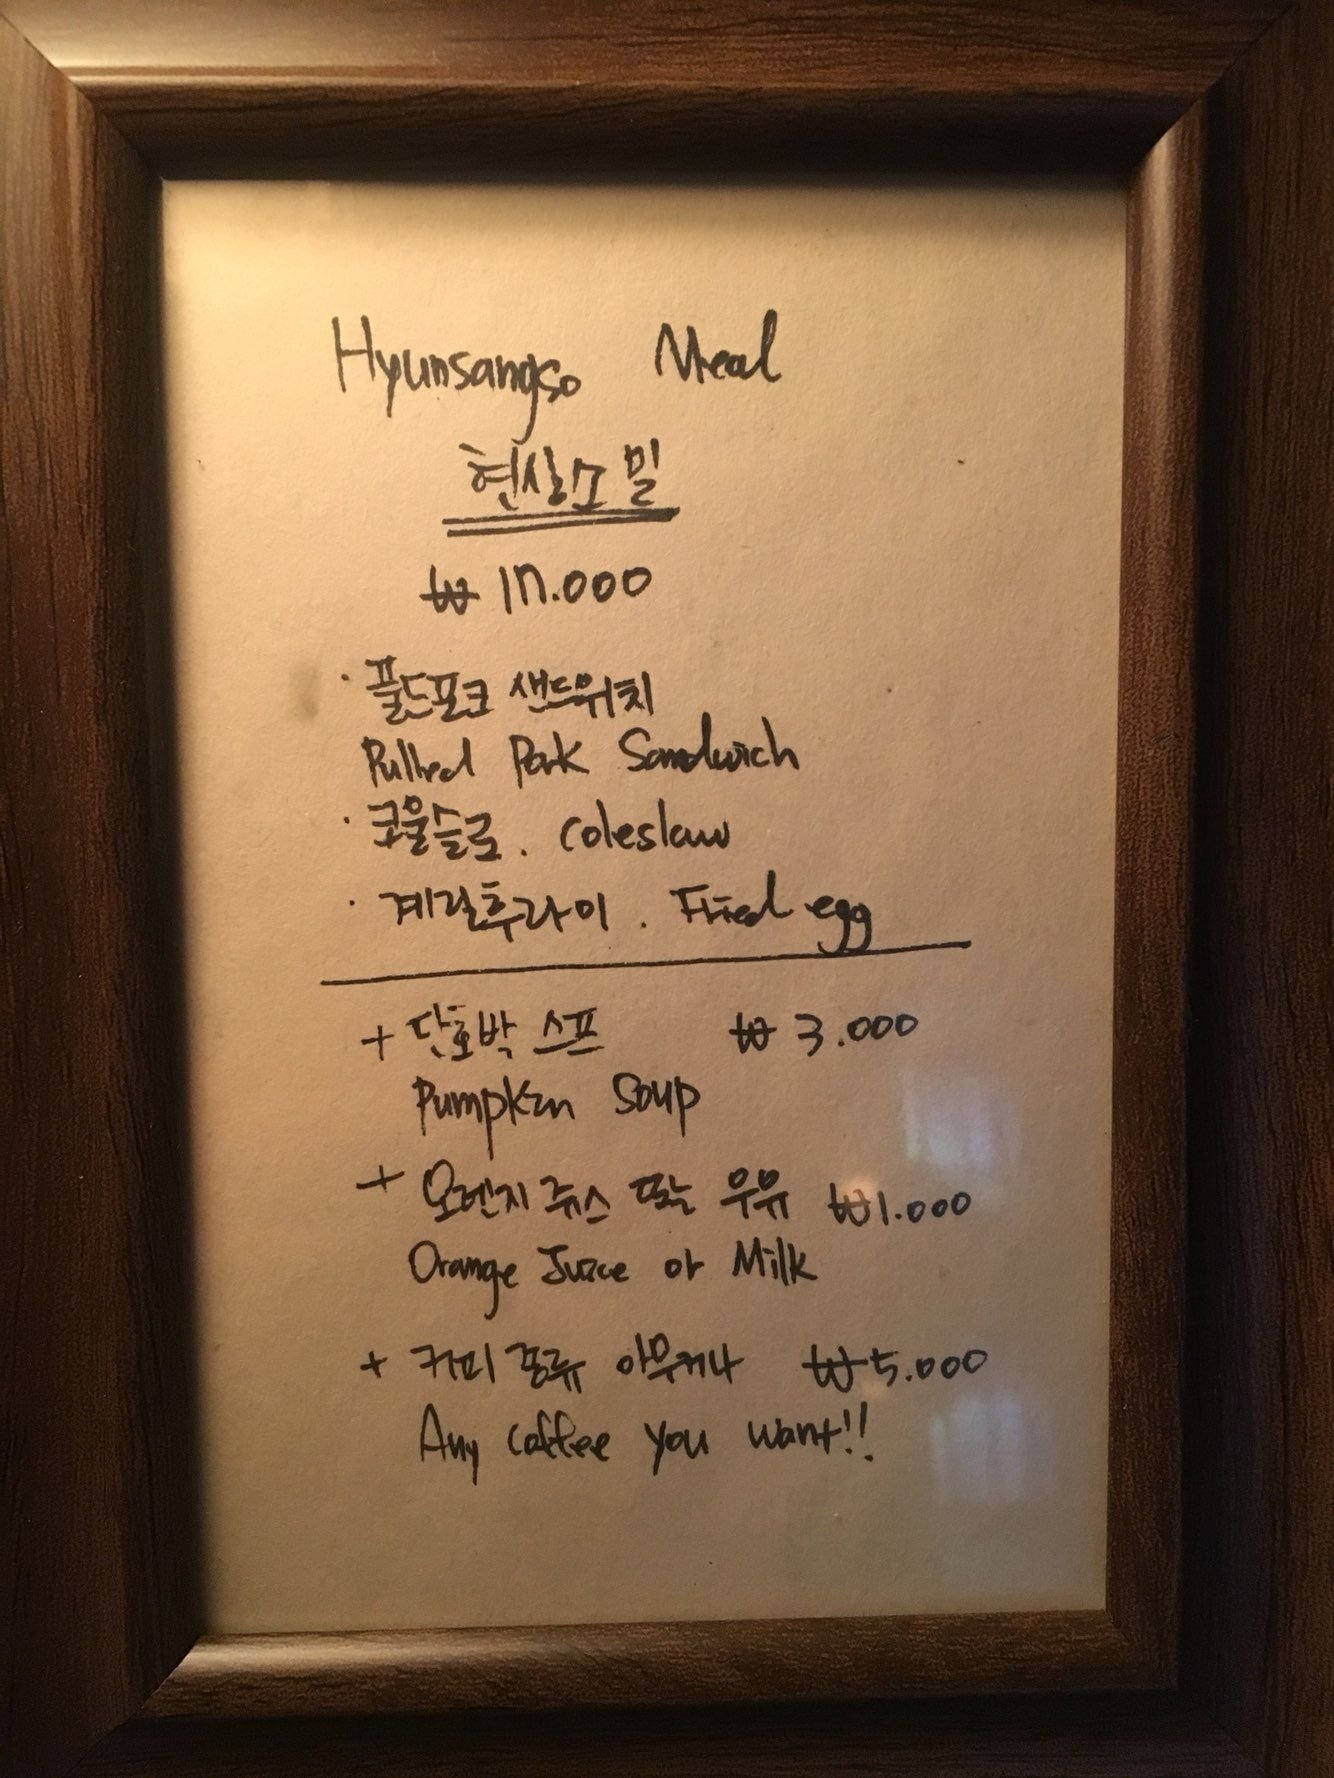 Hyunsangso Meal
현상소 밀
₩ 17.000
· 풀드포크 샌드위치
Pulled Pork Sandwich
· 코울슬로 . Coleslaw
· 계란후라이 . Fried egg
+ 단호박 스프 ₩ 3.000
Pumpkin Soup
+ 오렌지 쥬스 또는 우유 ₩1.000
Orange Juice or Milk
+ 커피 종류 아무거나 ₩5.000
Any Coffee you want!!